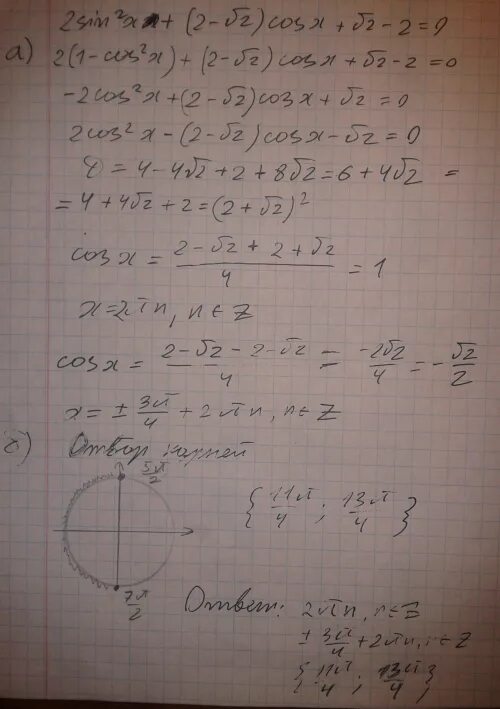 2sin²x + (2-√2)cosx + √2-2=0
а) 2(1-cos²x)+(2-√2)cosx+√2-2=0
-2cos²x+(2-√2)cosx+√2=0
2cos²x-(2-√2)cosx-√2=0
D=4-4√2+2+8√2=6+4√2 =
=4+4√2+2=(2+√2)²
cosx = (2-√2+2+√2)/4 = 1
x=2πn, n∈Z
cosx = (2-√2-2-√2)/4 = -2√2/4 = -√2/2
x=± 3π/4 + 2πn, n∈Z
б) Отбор корней
5π/2
{11π/4 ; 13π/4}
7π/2
Ответ: 2πn, n∈Z
± 3π/4 + 2πn, n∈Z
{11π/4 ; 13π/4}